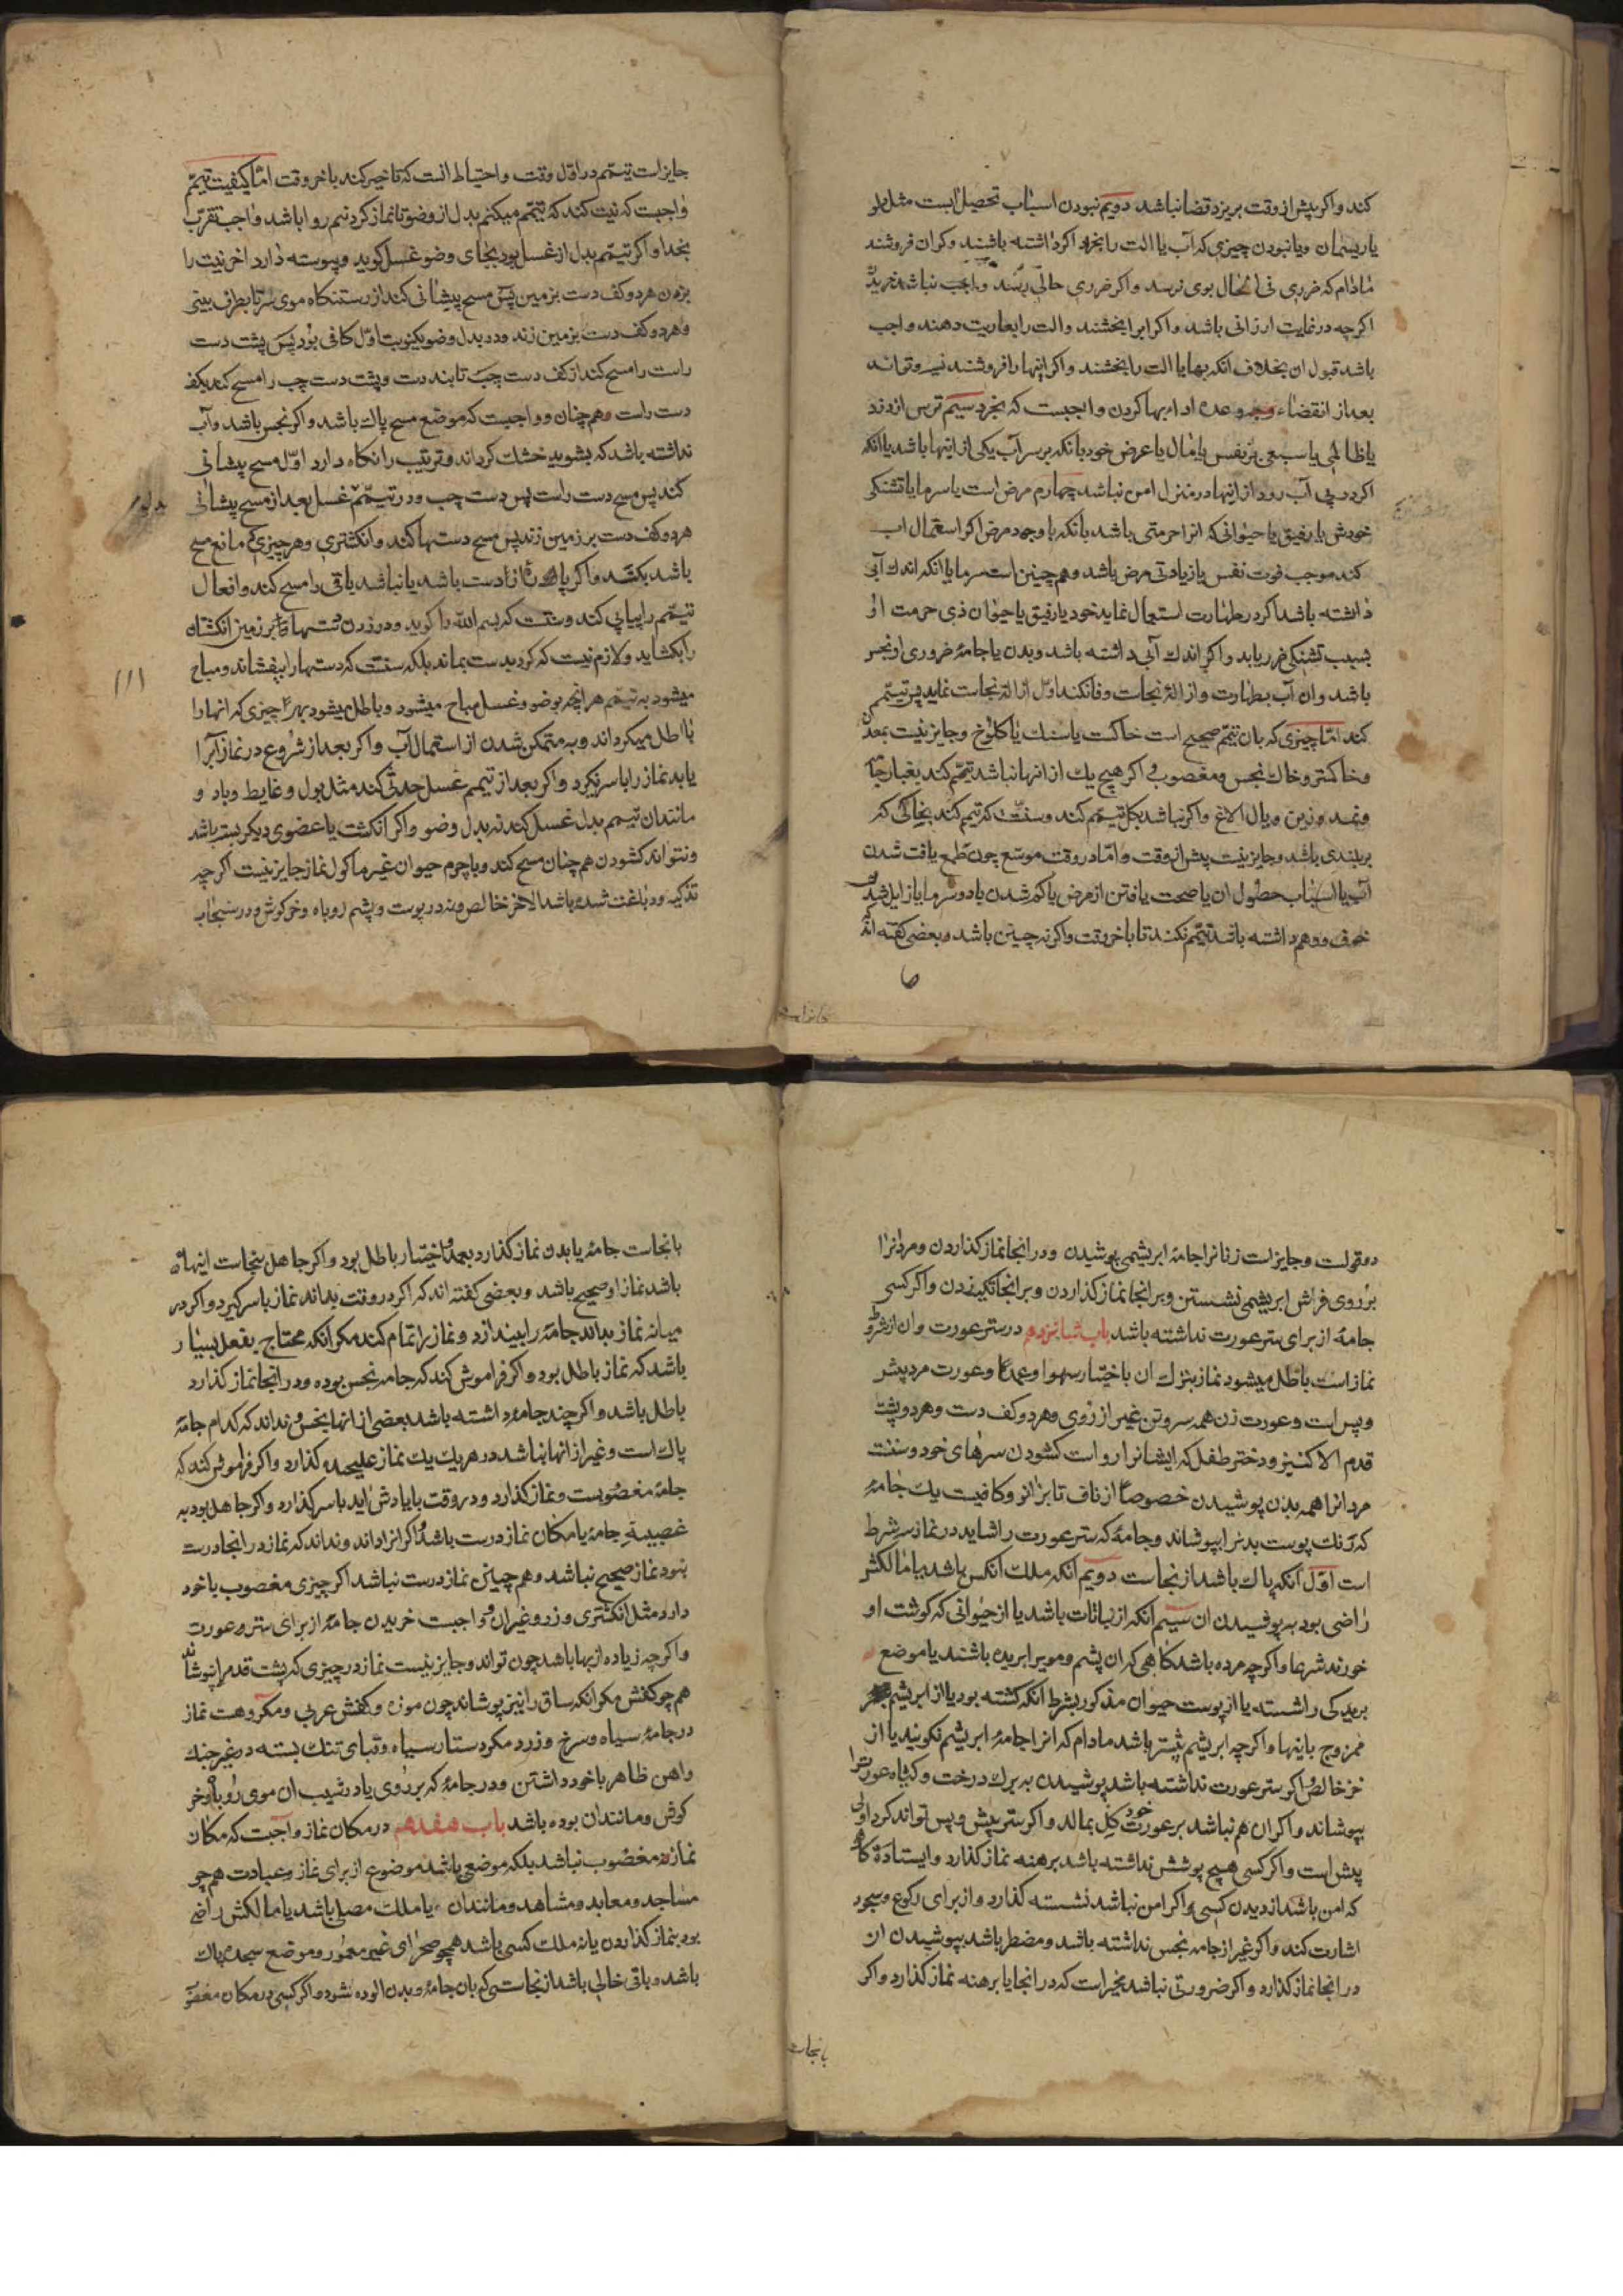 کند واکر پیش از وقت بریزد قضا نباشد دویم نبودن اسباب تحصیل ابست مثل دلو
یا ریسمان ویا نبودن چیزی که آب یا الت را بخرد اکر داشته باشند وکران فروشند
مادام که ضرری فی الحال بوی نرسد واکر ضرری حالی رسد واجب نباشد خرید
اکرچه در غایت ارزانی باشد واکر ابرا بخشند والت را بعاریت دهند واجب
باشد قبول ان بخلاف انکه بها یا الت را بخشند واکر اینها را فروشند نسیه وتواند
بعد از انقضاء وعده ادا بها کردن واجبست که بخرد سیم ترس از دزد
یا ظالمی یا سبعی بر نفس یا مال یا عرض خود بانکه بر سر آب یکی از اینها باشد یا انکه
اکر در پی آب رود از اینها در منزل امن نباشد چهارم مرض است یا سرما یا تشنکی
خودش یا رفیق یا حیوانی که انرا حرمتی باشد بانکه با وجود مرض اکر استعمال اب
کند موجب فوت نفس یا زیادتی مرض باشد وهم چنین است سرما یا انکه اندك آبی
داشته باشد اکر در طهارت استعمال نماید خود یا رفیق یا حیوان ذی حرمت او
بسبب تشنکی ضرر یابد واکر اندك آبی داشته باشد وبدن یا جامهٔ ضروری او نجس
باشد وان آب بطهارت وازالهٔ نجاست وفا نکند اول ازالهٔ نجاست نماید پس تیمم
کند اما چیزی که بان تیمم صحیح است خاکست یا سنك یا کلوخ وجایز نیست بمعدن
وخاکستر وخاك نجس ومغصوب واکر هیچ یك از انها نباشد تیمم کند بغبار جامه
ونمد وزین ویال الاغ واکر نباشد بکل تیمم کند وسنت که تیمم کند بخاکی که
بر بلندی باشد وجایز نیست پیش از وقت واما در وقت موسع چون طمع یافت شدن
آب یا اسباب حصول ان یا صحت یافتن از مرض یا کم شدن یا دو سرما یا زایل شدن
خوف ووهم داشته باشد تیمم نکند تا باخر وقت واکر نه چنین باشد وبعضی کفته اند که
جایزاست تیمم در اول وقت واحتیاط انست که تاخیر کند باخر وقت اما کیفیت تیمم
واجبست که نیت کند که تیمم میکنم بدل از وضو تا نماز کردنم روا باشد واجب تقرب
بخدا واکر تیمم بدل از غسل بود بجای وضو غسل کوید وپیوسته دارد اخر نیت را
بزدن هر دو کف دست بزمین پس مسح پیشانی کند از رستنکاه موی سر تا بطرف بینی
وهر دو کف دست بزمین زند ودر بدل وضو یکنوبت اول کافی بود پس پشت دست
راست را مسح کند از کف دست چپ تا بند دست وپشت دست چپ را مسح کند بکف
دست راست وهم چنان وواجبست که موضع مسح پاك باشد واکر نجس باشد وآب
نداشته باشد که بشوید خشك کرداند وترتیب را نکاه دارد اول مسح پیشانی
کند پس مسح دست راست پس دست چپ ودر تیمم غسل بعد از مسح پیشانی
هر دو کف دست بر زمین زند پس مسح دستها کند وانکشتری وهر چیزی که مانع مسح
باشد بکشد واکر پارهٔ از دست باشد یا نباشد باقی را مسح کند وافعال
تیمم را پیاپی کند وسنت که بسم الله را کوید ودر زدن دستها را بر زمین انکشتان
را بکشاید ولازم نیست که کرد بدست بماند بلکه سنت که دستها را بیفشاند ومباح
میشود به تیمم هر انچه بوضو وغسل مباح میشود وباطل میشود بهر چیزی که انها را
باطل میکرداند وبه متمکن شدن از استعمال آب واکر بعد از شروع در نماز آبرا
یابد نماز را با سر نکیرد واکر بعد از تیمم غسل حدثی کند مثل بول وغایط وباد و
مانند ان تیمم بدل غسل کند نه بدل وضو واکر انکشت یا عضوی دیکر بسته باشد
ونتواند کشودن هم چنان مسح کند وبا چرم حیوان غیر ماکول نماز جایز نیست اکرچه
تذکیه ودباغت شده باشد الا خز خالص ونه در پوست وپشم روباه وخرکوش ودر سنجاب
دو قولست وجایزاست زنانرا جامهٔ ابریشمی پوشیدن ودر انجا نماز کذاردن ومردانرا
بر روی فراش ابریشمی نشستن وبر انجا نماز کذاردن وبر انجا تکیه زدن واکر کسی
جامهٔ از برای ستر عورت نداشته باشد باب شانزدهم در ستر عورت وان از شروط
نماز است باطل میشود نماز بترك ان باختیار سهوا وعمدا وعورت مرد پیش
وپس است وعورت زن همه سر وتن غیر از روی وهر دو کف دست وهر دو پشت
قدم الا کنیز ودختر طفل که ایشانرا رواست کشودن سرهای خود وسنت
مردانرا همه بدن پوشیدن خصوصا از ناف تا بزانو وکافیست یك جامهٔ
که رنك پوست بدنرا بپوشاند وجامهٔ که ستر عورت را شاید در نماز سه شرط
است اول آنکه پاك باشد از نجاست دویم آنکه ملك انکس باشد یا مالکش
راضی بود به پوشیدن ان سیم انکه از نباتات باشد یا از حیوانی که کوشت او
خورند شرعا واکرچه مرده باشد کاهی که ان پشم ومو را بریده باشند یا موضع
بریدکی را شسته یا از پوست حیوان مذکور بشرط آنکه کشته بود یا از ابریشم
ممزوج باینها واکرچه ابریشم بیشتر باشد مادام که انرا جامهٔ ابریشم نکویند یا از
خز خالص واکر ستر عورت نداشته باشد پوشیدن به برك درخت وکیاه عورترا
بپوشاند واکر ان هم نباشد بر عورت خود کل بمالد واکر ستر پیش وپس تواند کرد اولی
پیش است واکر کسی هیچ پوشش نداشته باشد برهنه نماز کذارد وایستاده کاهی
که امن باشد از دیدن کسی واکر امن نباشد نشسته کذارد واز برای رکوع وسجود
اشارت کند واکر غیر از جامه نجس نداشته باشد ومضطر باشد بپوشیدن ان
در انجا نماز کذارد واکر ضرورتی نباشد مخیر است که در انجا یا برهنه نماز کذارد واکر
بانجاست
بانجاست جامه یا بدن نماز کذارد بعمد واختیار باطل بود واکر جاهل بنجاست اینها
باشد نماز او صحیح باشد وبعضی کفته اند که اکر در وقت بداند نماز با سر کیرد واکر در
میانه نماز بداند جامه را بیندازد ونماز را تمام کند مکر انکه محتاج بفعل بسیار
باشد که نماز باطل بود واکر فراموش کند که جامه نجس بوده ودر انجا نماز کذارد
باطل باشد واکر چند جامه داشته باشد بعضی از انها نجس ونداند که کدام جامهٔ
پاك است وغیر از انها نباشد در هر یك یك نماز علیحده کذارد واکر فراموش کند که
جامهٔ مغصوبست ونماز کذارد ودر وقت با یادش اید با سر کذارد واکر جاهل بود به
غصبیة جامه یا مکان نماز درست باشد واکر انرا داند ونداند که نماز در انجا درست
نبود نماز صحیح نباشد وهم چنین نماز درست نباشد اکر چیزی مغصوب با خود
دارد مثل انکشتری وزر وغیر ان وواجبست خریدن جامه از برای ستر عورت
واکرچه زیاده از بها باشد چون تواند وجایز نیست نماز در چیزی که پشت قدم را پوشاند
هم چو کفش مکر انکه ساق را نیز پوشاند چون موزه وکفش عربی ومکروهست نماز
در جامهٔ سیاه وسرخ وزرد مکر دستار سیاه وقبای تنك بسته در غیر جنك
واهن ظاهر با خود داشتن ودر جامهٔ که بر روی یا در شیب ان موی روباه وخر
کوش ومانند ان بوده باشد باب هفدهم در مکان نماز واجبست که مکان
نماز مغصوب نباشد بلکه موضعی باشد موضوع از برای نماز وعبادت هم چو
مساجد ومعابد ومشاهد ومانند ان یا ملك مصلی باشد یا مالکش راضی
بود بنماز کذاردن یا نه ملك کسی باشد همچو صحرای غیر معمور وموضع سجده پاك
باشد وباقی خالی باشد از نجاستی که بان جامه وبدن الوده شود واکر کسی در مکان مغصوب